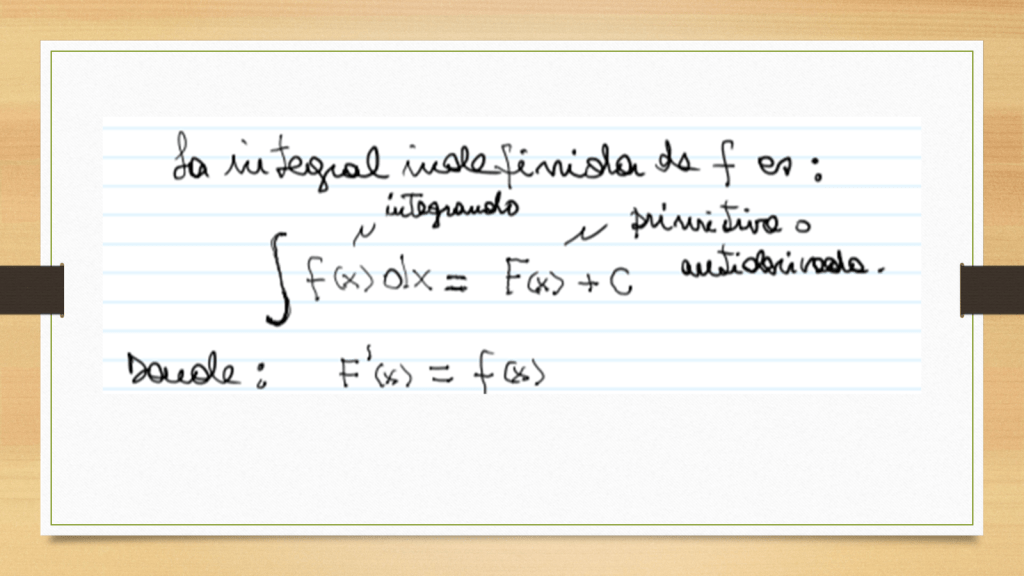 La integral indefinida de f es:
integrando
primitiva o
antiderivada.
∫ f(x) dx = F(x) + C
Donde: F'(x) = f(x)